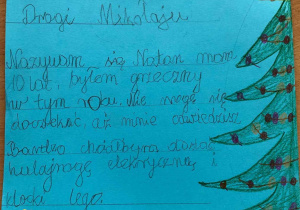 Drogi Mikołaju
Nazywam się Natan mam
10 lat, byłem grzeczny
w tym roku, nie mogę się
doczekać, aż mnie odwiedzisz
Bardzo chciałbym dostać
hulajnogę elektryczną i
klocki lego